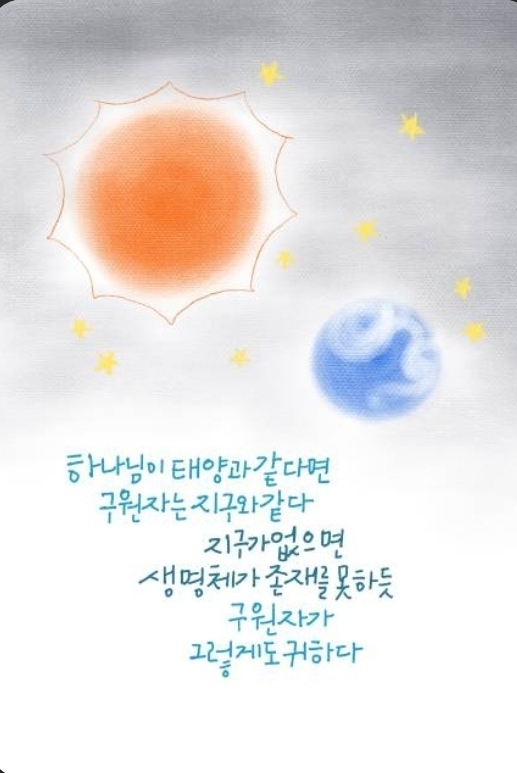 하나님이 태양과 같다면
구원자는 지구와 같다
지구가 없으면
생명체가 존재를 못하듯
구원자가
그렇게도 귀하다